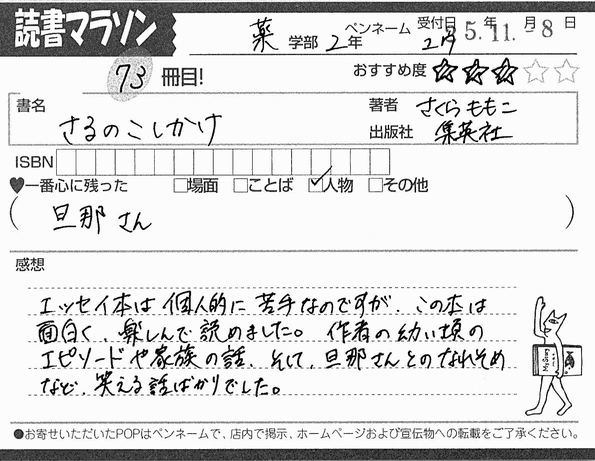 読書マラソン
薬 学部 2年 ペンネーム 受付日 5.11.-8 年 日
73 冊目!
おすすめ度 ★★★☆☆
書名 さるのこしかけ
著者 さくらももこ
出版社 集英社
ISBN
♥一番心に残った □場面 □ことば ☑人物 □その他
( 旦那さん )
感想
エッセイ本は個人的に苦手なのですが、この本は
面白く、楽しんで読めました。作者の幼い頃の
エピソードや家族の話、そして、旦那さんとのなれそめ
など、笑える話ばかりでした。
●お寄せいただいたPOPはペンネームで、店内で掲示、ホームページおよび宣伝物への転載をご了承ください。